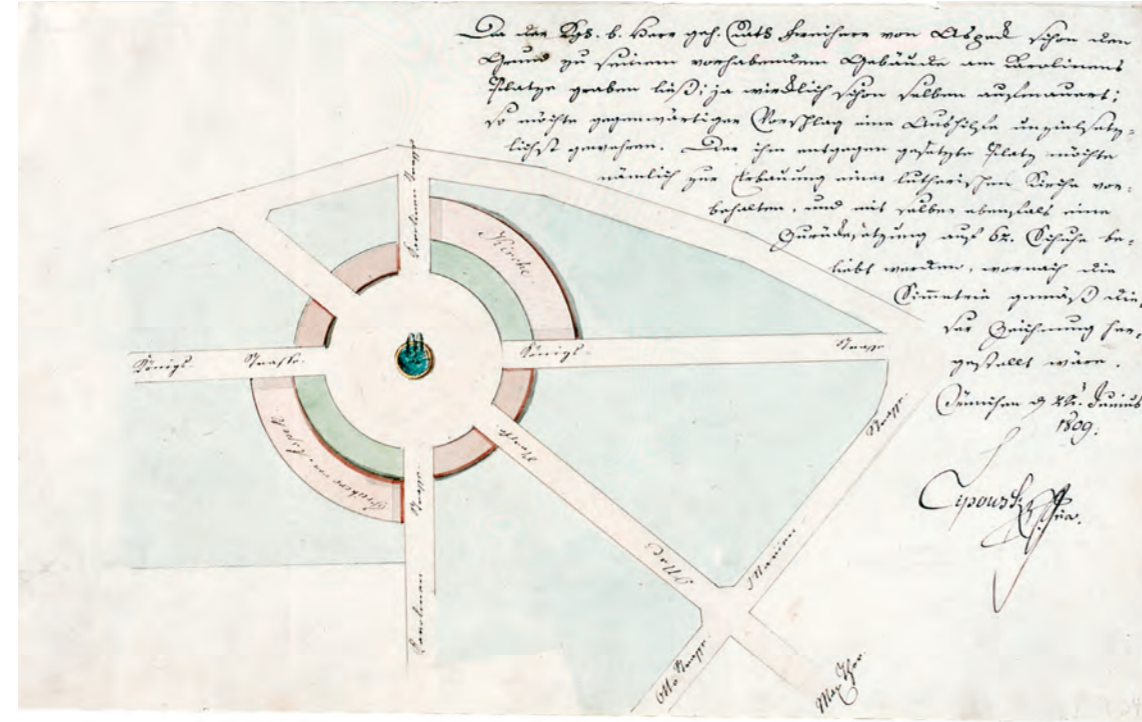 Da der Kgl. b. Herr geh. Raths Freiherr von Asbeck schon den
Grund zu seinem vorhabendem Gebäude am Karolinens
Platze graben ließ; ja wirklich schon selben ausmauert;
so möchte gegenwärtiger Vorschlag eine Aushilfe
gewähren. Der ihm entgegen gesetzte Platz möchte
nämlich zur Erbauung einer lutherischen Kirche vor-
behalten, und mit selber ebenfals eine
Zurücksetzung auf 62. Schuhe be-
liebt werden, wornach die
Simmetrie gemäß die-
ser Zeichnung her-
gestellt wäre.
München Junius
1809.
Karolinen Strasse
Kirche
Königs- Strasse.
Königs- Strasse
Freiherr von Asbeck
Strasse
Max
Karolinen Strasse
Marien Strasse
Otto Strasse
Max Thor.